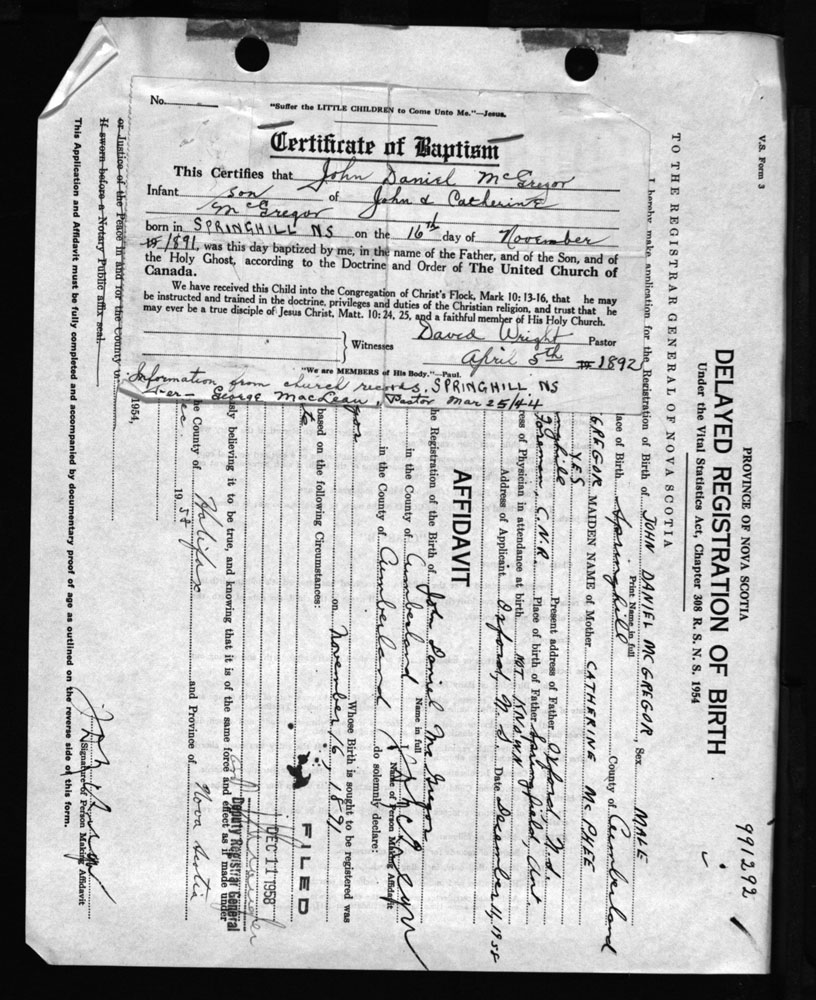 No.
"Suffer the LITTLE CHILDREN to Come Unto Me."—Jesus.
Certificate of Baptism
This Certifies that John Daniel McGregor
Infant son of John & Catherine
McGregor
born in SPRINGHILL NS on the 16th day of November
1891, was this day baptized by me, in the name of the Father, and of the Son, and of
the Holy Ghost, according to the Doctrine and Order of The United Church of
Canada.
We have received this Child into the Congregation of Christ's Flock, Mark 10: 13-16, that he may
be instructed and trained in the doctrine, privileges and duties of the Christian religion, and trust that he
may ever be a true disciple of Jesus Christ, Matt. 10: 24, 25, and a faithful member of His Holy Church.
David Wright Pastor
Witnesses
April 5th 1892
"We are MEMBERS of His Body."—Paul.
Information from church records, SPRINGHILL NS
Per – George MacLean, Pastor Mar 25/44
V.S. Form 3
991292
PROVINCE OF NOVA SCOTIA
DELAYED REGISTRATION OF BIRTH
Under the Vital Statistics Act, Chapter 308 R. S. N. S. 1954
TO THE REGISTRAR GENERAL OF NOVA SCOTIA
I hereby make application for the Registration of Birth of JOHN DANIEL MCGREGOR, Sex MALE
Print Name in full
lace of Birth Springhill County of Cumberland
GREGOR MAIDEN NAME of Mother CATHERINE McPHEE
YES
Present address of Father Oxford N.S.
Foreman, C.N.R. Place of birth of Father Springfield, Ant.
ress of Physician in attendance at birth NOT KNOWN
Address of Applicant Oxford, N.S. Date December 4, 1958
AFFIDAVIT
he Registration of the Birth of John Daniel McGregor
Name in full
in the County of Cumberland
Name of Person Making Affidavit
in the County of Cumberland do solemnly declare:
Whose Birth is sought to be registered was
on November 16, 1891
based on the following Circumstances:
FILED
DEC 11 1958
Deputy Registrar General
sly believing it to be true, and knowing that it is of the same force and effect as if made under
he County of Halifax and Province of Nova Scotia
ec. 1958
1954,
or Justice of the Peace in and for the County
If sworn before a Notary Public affix seal.
Signature of Person Making Affidavit
This Application and Affidavit must be fully completed and accompanied by documentary proof of age as outlined on the reverse side of this form.